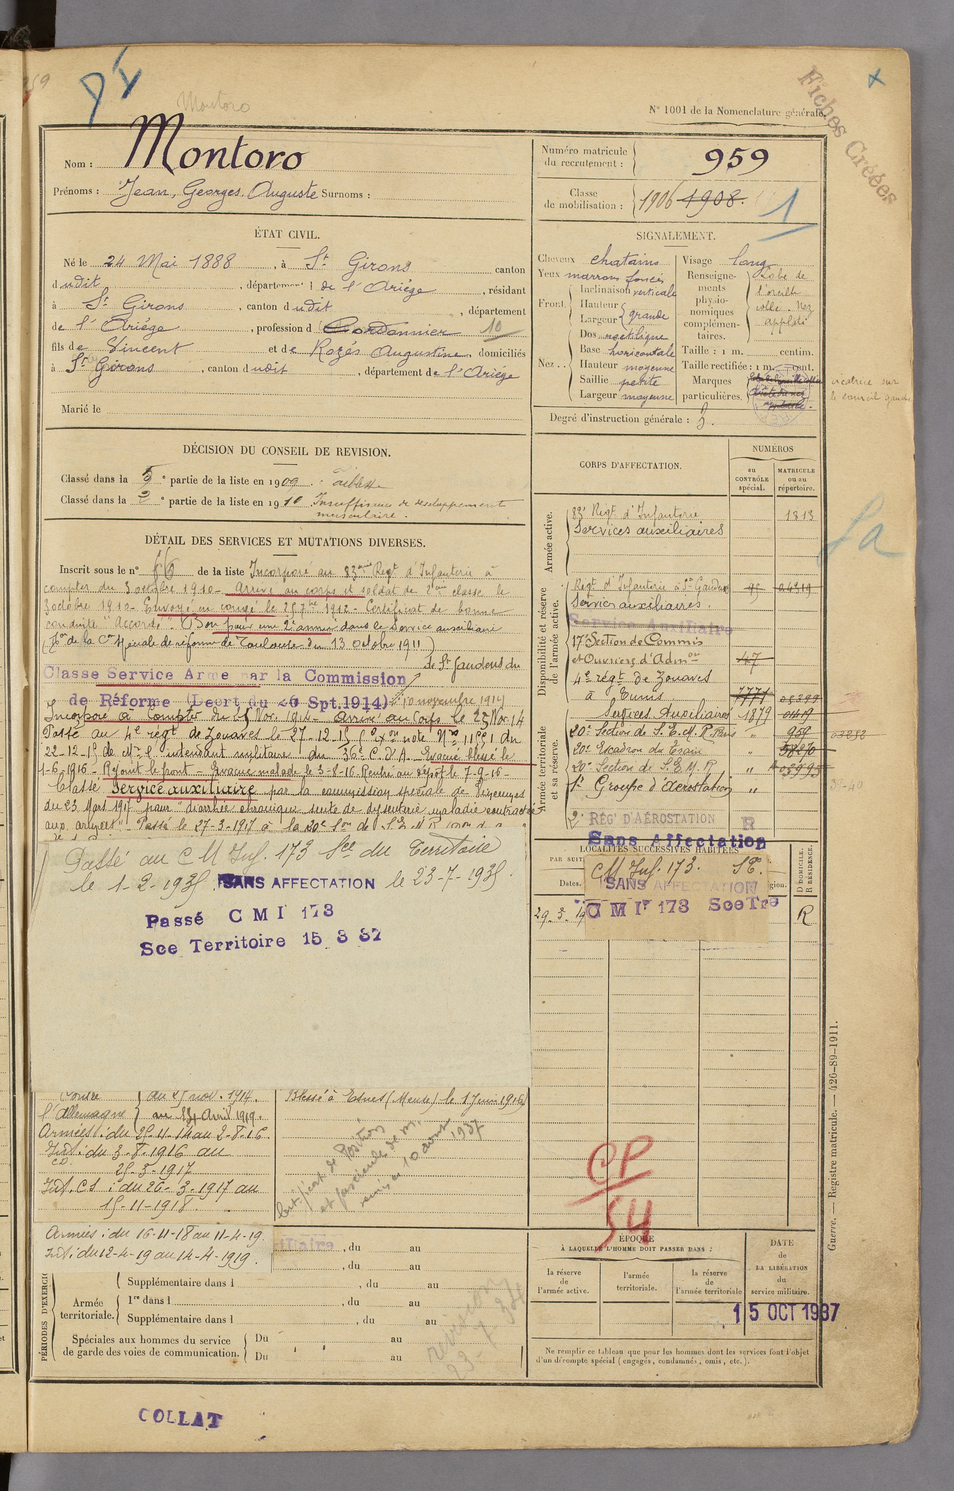 Montoro
N° 1001 de la Nomenclature générale.
Fiches Créées
Nom : Montoro
Prénoms : Jean, Georges, Auguste Surnoms :
Numéro matricule du recrutement : 959
Classe de mobilisation : 1906 1908.
1
ÉTAT CIVIL.
Né le 24 Mai 1888, à St Girons canton
dudit, département de l'Ariège, résidant
à St Girons, canton dudit, département
de l'Ariège, profession d Cordonnier 10
fils de Vincent et de Rozés Augustine, domiciliés
à St Girons, canton dudit, département de l'Ariège
Marié le
SIGNALEMENT.
Cheveux chatains
Yeux marrons foncés
Front Inclinaison verticale
Hauteur
Largeur grande
Nez Dos rectiligne
Base horizontale
Hauteur moyenne
Saillie petite
Largeur moyenne
Visage long
Renseignements physionomiques complémentaires.
Taille : 1 m. centim.
Taille rectifiée : 1 m. cent.
Marques particulières.
cicatrice sur
Degré d'instruction générale : 3.
DÉCISION DU CONSEIL DE REVISION.
Classé dans la 5e partie de la liste en 1909. faiblesse
Classé dans la 2e partie de la liste en 1910 Insuffisance de développement
musculaire.
DÉTAIL DES SERVICES ET MUTATIONS DIVERSES.
Inscrit sous le n° 66 de la liste Incorporé au 83ème Régt d'Infanterie à
compter du 3 octobre 1910 - Arrivé au corps et soldat de 2me classe le
3 octobre 1910 - Envoyé en congé le 25 7bre 1912 - Certificat de bonne
conduite "Accordé". Bon pour une 2e année dans le service auxiliaire
de réforme de Toulouse du 13 octobre 1911)
de St Gaudens du
Classe Service Armé par la Commission
de Réforme (Decrt du 26 Spt.1914)
10 novembre 1914
Incorporé à compter du 25 Nov. 1914 - Arrivé au Corps le 25 Nov 14
Passé au 4e régt de Zouaves le 27-12-15
22-12-15 de Mr l'intendant militaire du 36e C.D'A - Evacué blessé le
1-6-1916 - Rejoint le front - Evacué malade le 3-8-16. Rentré au dépôt le 7-9-16 -
Classé Service auxiliaire par la commission spéciale de Vincennes
du 23 Mars 1917 pour "diarrhée chronique suite de dysenterie maladie contractée
aux armées" Passé le 27-3-1917 à la 20e Son de S.E.M.R
Passé au C M Inf. 173 Sce du Territoire
le 1-2-1935. SANS AFFECTATION le 23-7-1935.
Passé C M I 173
Sce Territoire 15 3 32
CORPS D'AFFECTATION.
NUMÉROS
au CONTRÔLE spécial.
MATRICULE ou au répertoire.
Armée active.
83e Régt d'Infanterie 1813
Services auxiliaires
Disponibilité et réserve de l'armée active.
Régt d'Infanterie à St Gaudens
Services auxiliaires.
Service Auxiliaire
17e Section de Commis
et Ouvriers d'Admon
4e régt de Zouaves
à Tunis
Services Auxiliaires 1879
Armée territoriale et sa réserve.
20e Section de S.E.M.R Paris 958
20e Escadron du Train
20e Section de S.E.M.R.
1er Groupe d'Aérostation
2e RÉGT D'AÉROSTATION R
Sans Affectation
LOCALITÉS SUCCESSIVES HABITÉES
PAR SUITE
Dates.
D DOMICILE. R RÉSIDENCE.
C M Inf. 173. S T.
SANS AFFECTATION
C M Ir 173 Sce Tre
29.3.19 R
Contre l'Allemagne
au 25 nov. 1914.
au 14 Avril 1919.
Armées : du 25-11-14 au 2-8-16
Int. : du 3-8-1916 au
25-3-1917
Int. C S : du 26-3-1917 au
15-11-1918.
Armées : du 16-11-18 au 11-4-19.
Int : du 12-4-19 au 14-4-1919.
Blessé à Esnes (Meuse) le 1 Juin 1916
Certificat de Position
et fascicule de m.
remis le 10 août 1937
CP
54
, du au
, du au
PÉRIODES D'EXERCICE
Armée territoriale.
Supplémentaire dans l , du au
1re dans l , du au
Supplémentaire dans l , du au
Spéciales aux hommes du service
de garde des voies de communication.
Du au
Du au
ÉPOQUE
À LAQUELLE L'HOMME DOIT PASSER DANS :
la réserve de l'armée active.
l'armée territoriale.
la réserve de l'armée territoriale
DATE de LA LIBÉRATION du service militaire.
15 OCT 1937
Ne remplir ce tableau que pour les hommes dont les services font l'objet
d'un décompte spécial (engagés, condamnés, omis, etc.).
Guerre. — Registre matricule. — 420-89-1911.
COLLAT